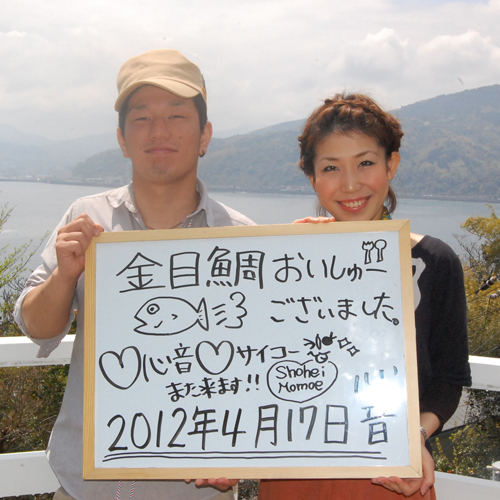 金目鯛おいしゅー
ございました。
♡心音♡サイコー
また来ます!!
Shohei
Momoe
2012年4月17日 音